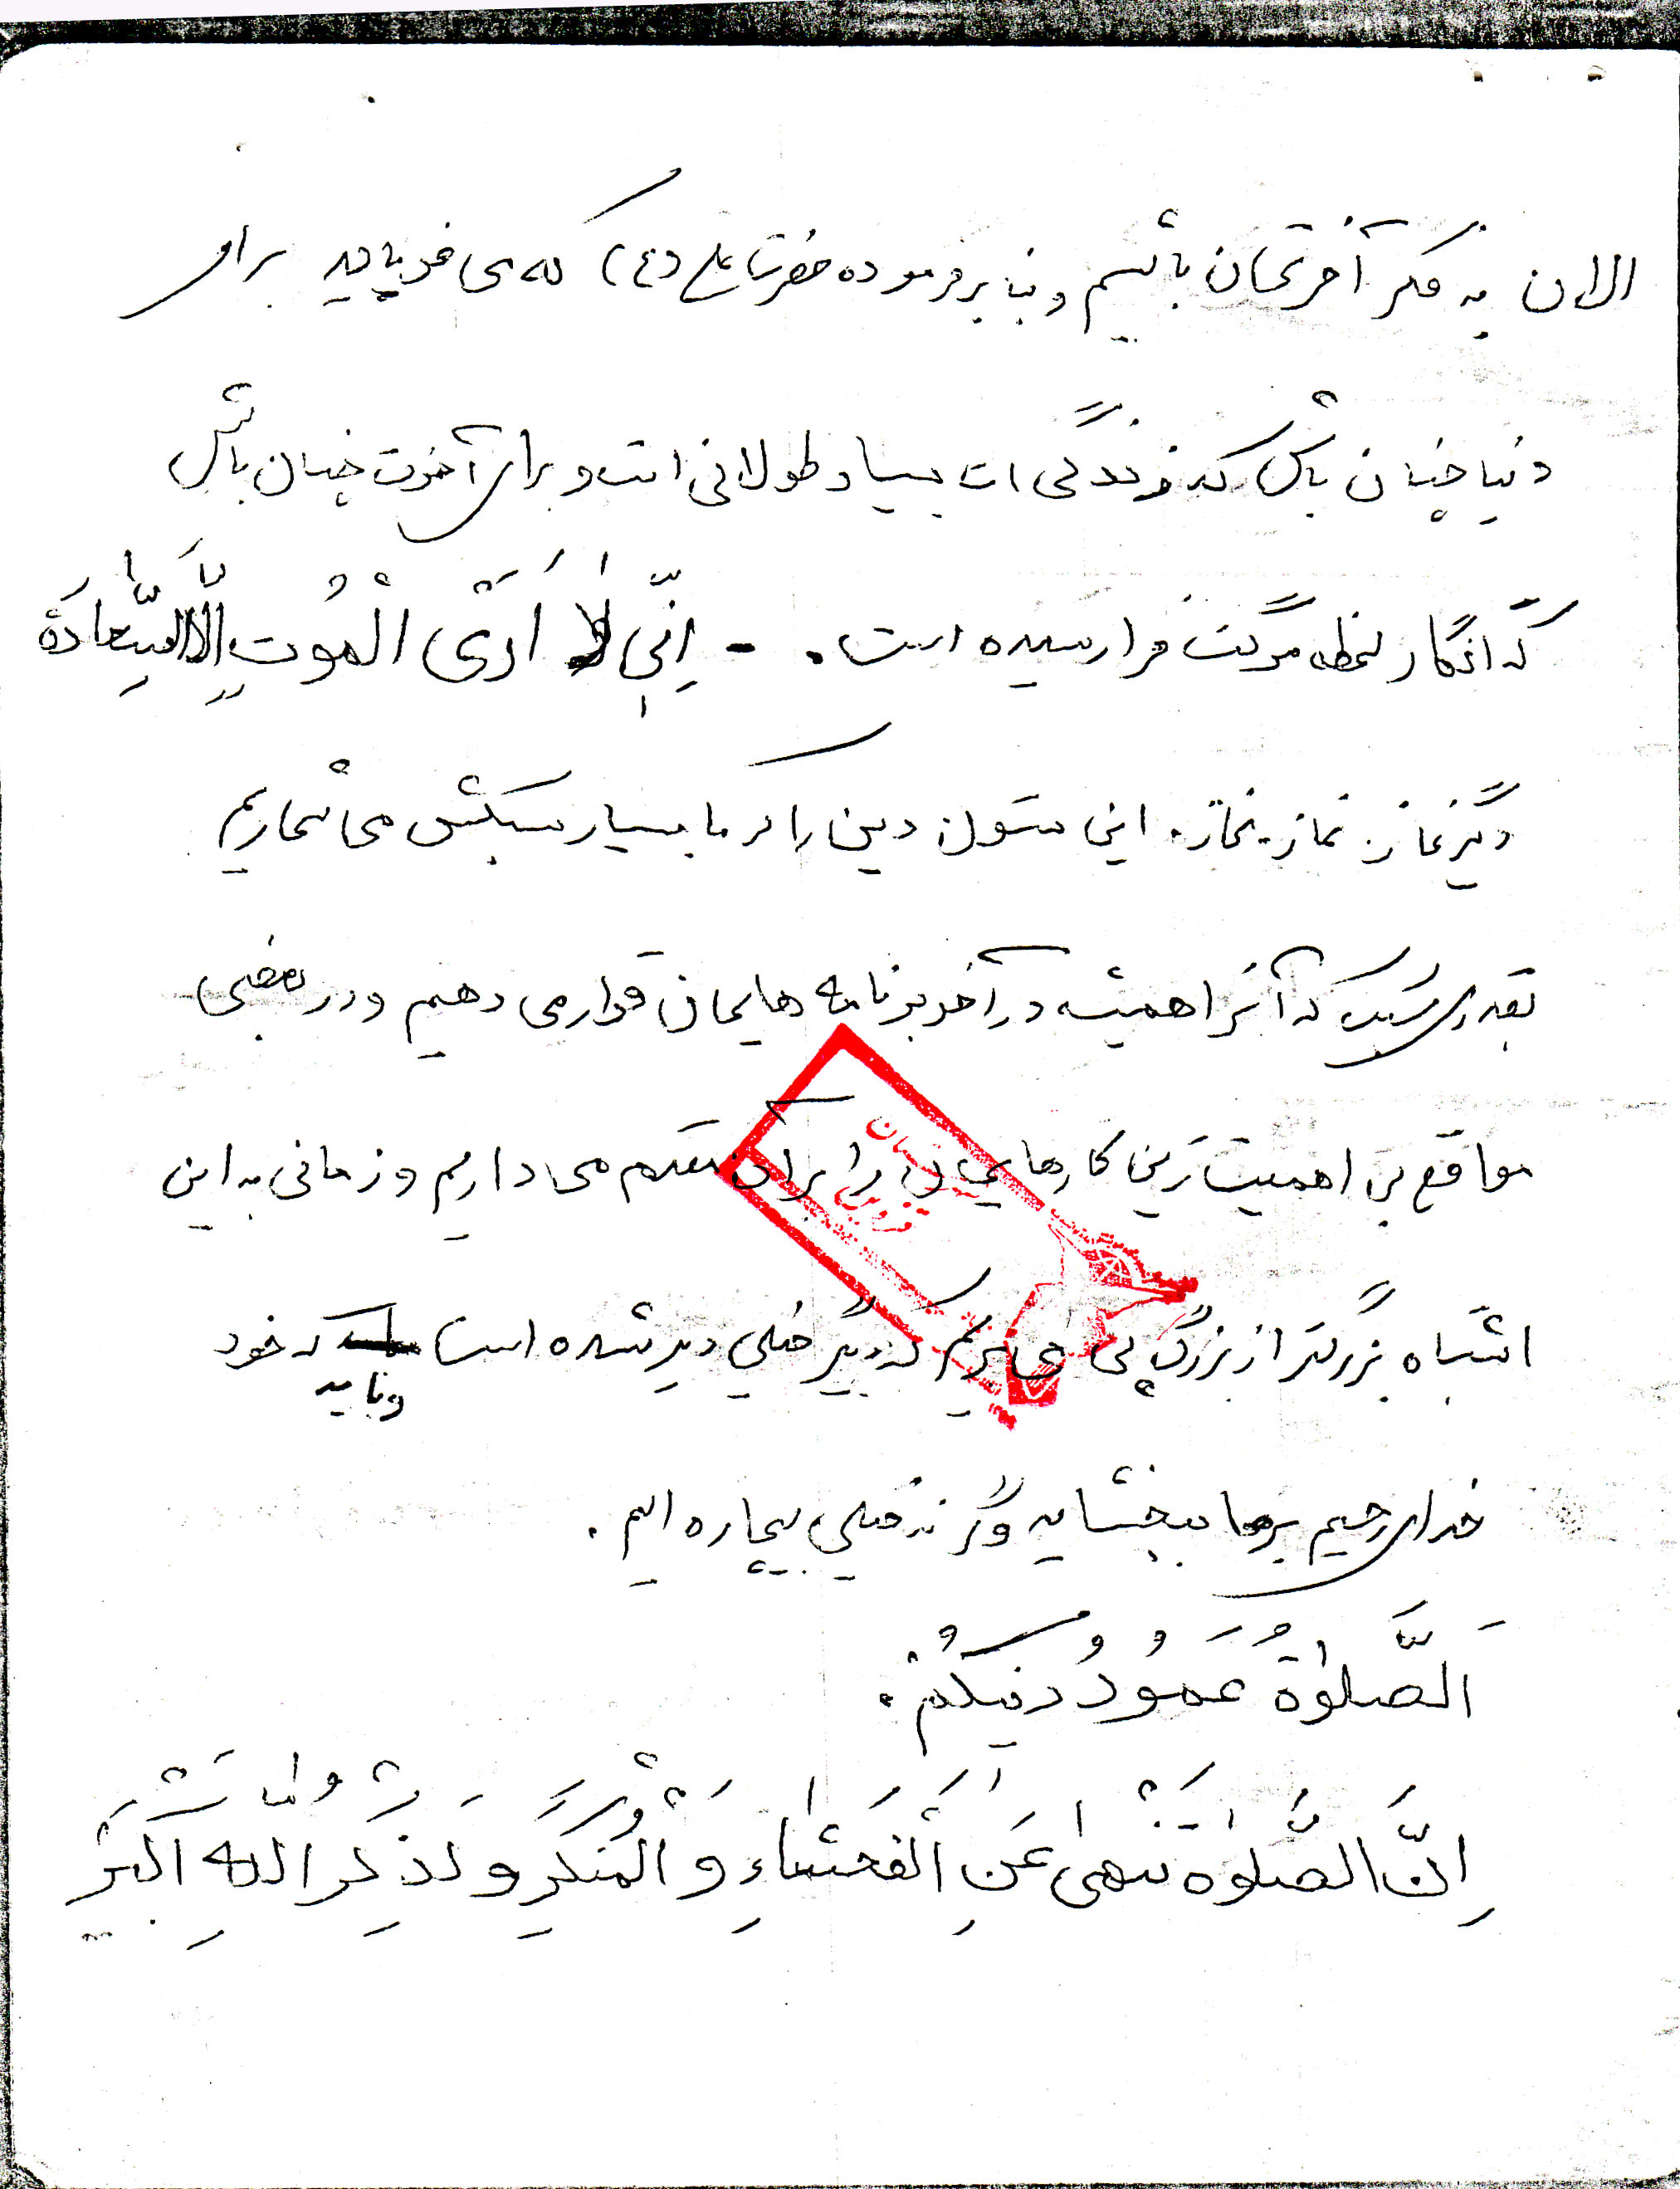 الان به فکر آخرتمان باشیم و بنا بر فرموده حضرت علی (ع) که می فرماید برای
دنیا چنان باش که زندگی ات بسیار طولانی است و برای آخرت چنان باش
که انگار لحظه مرگت فرا رسیده است. - اِنّی لا اَرَی الْمُوتِ اِلَّا السَّعادَة
دگر نماز. نماز. نماز. این ستون دین را که ما بسیار سبکش می شماریم
بقدری سبک که آنرا همیشه در آخر برنامه هایمان قرار می دهیم و در بعضی
مواقع بی اهمیت ترین کارهایمان را بر آن مقدم می داریم و زمانی به این
اشتباه بزرگتر از بزرگ پی می بریم که دیگر خیلی دیر شده است و باید که خود
خدای رحیم بر ما ببخشاید وگرنه خیلی بیچاره ایم.
اَلصَّلوٰةُ عَمُودُ دینِکُمْ.
اِنَّ الصَّلوٰةَ تَنْهیٰ عَنِ الْفَحْشاءِ وَ الْمُنْکَرِ وَ لَذِکْرُ اللهِ اَکْبَر
سیستان
قزوین